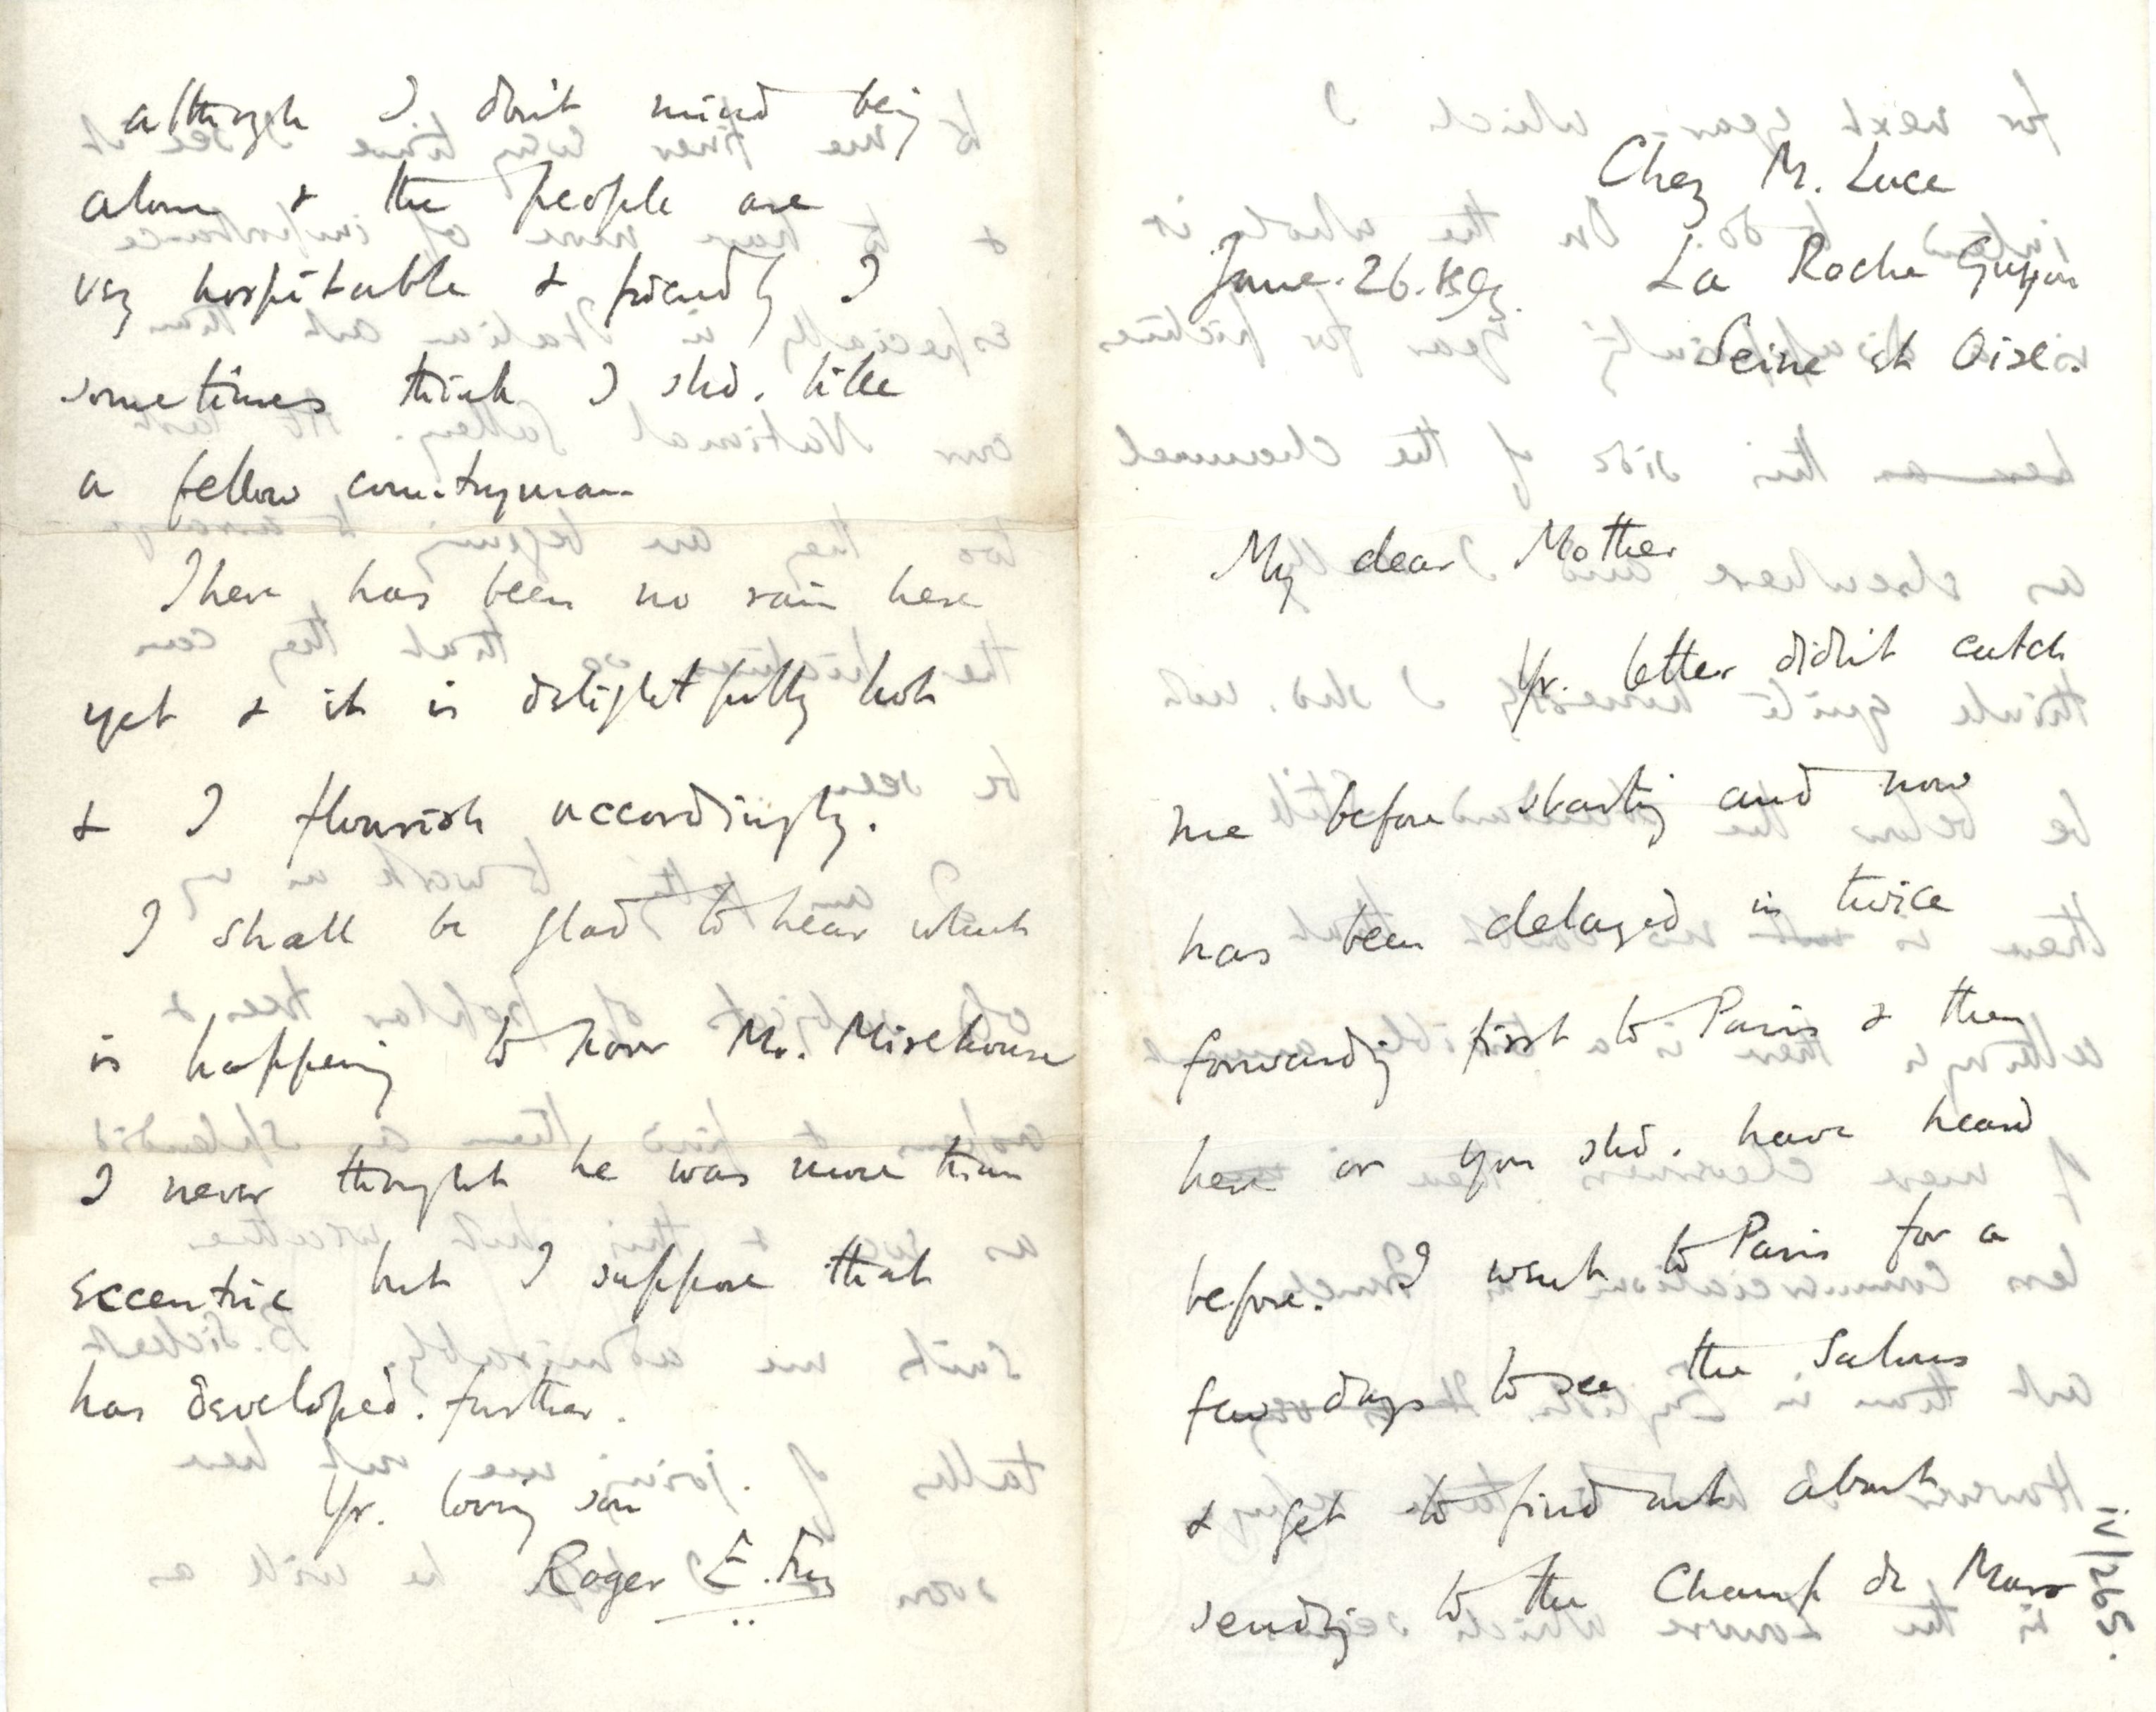 Chez M. Luce
June.26.1893. La Roche Guyon
Seine et Oise.
My dear Mother
Yr. letter didn't catch
me before starting and now
has been delayed in twice
forwarding first to Paris & then
here or you shd. have heard
before. I went to Paris for a
few days to see the Salons
& get to find out about
sending to the Champ de Mars
although I don't mind being
alone & the people are
very hospitable & friendly I
sometimes think I shd. like
a fellow countryman
There has been no rain here
yet & it is delightfully hot
& I flourish accordingly.
I shall be glad to hear what
is happening to poor Mr. Mirehouse
I never thought he was more than
eccentric but I suppose that
has developed. further.
Yr. loving son
Roger E. Fry